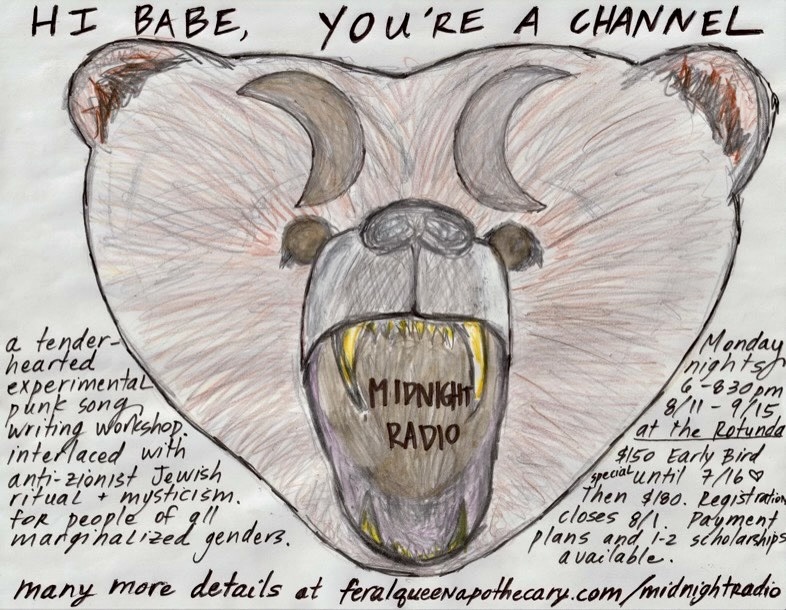 HI BABE, YOU'RE A CHANNEL
MIDNIGHT
RADIO
a tender-
hearted
experimental
punk song
writing workshop.
interlaced with
anti-zionist Jewish
ritual + mysticism.
for people of all
marginalized genders.
Monday
nights
6-830pm
8/11 - 9/15
at the Rotunda
$150 Early Bird
special until 7/16 ♡
Then $180. Registration
closes 8/1. Payment
plans and 1-2 scholarships
available.
many more details at feralqueenapothecary.com/midnightradio